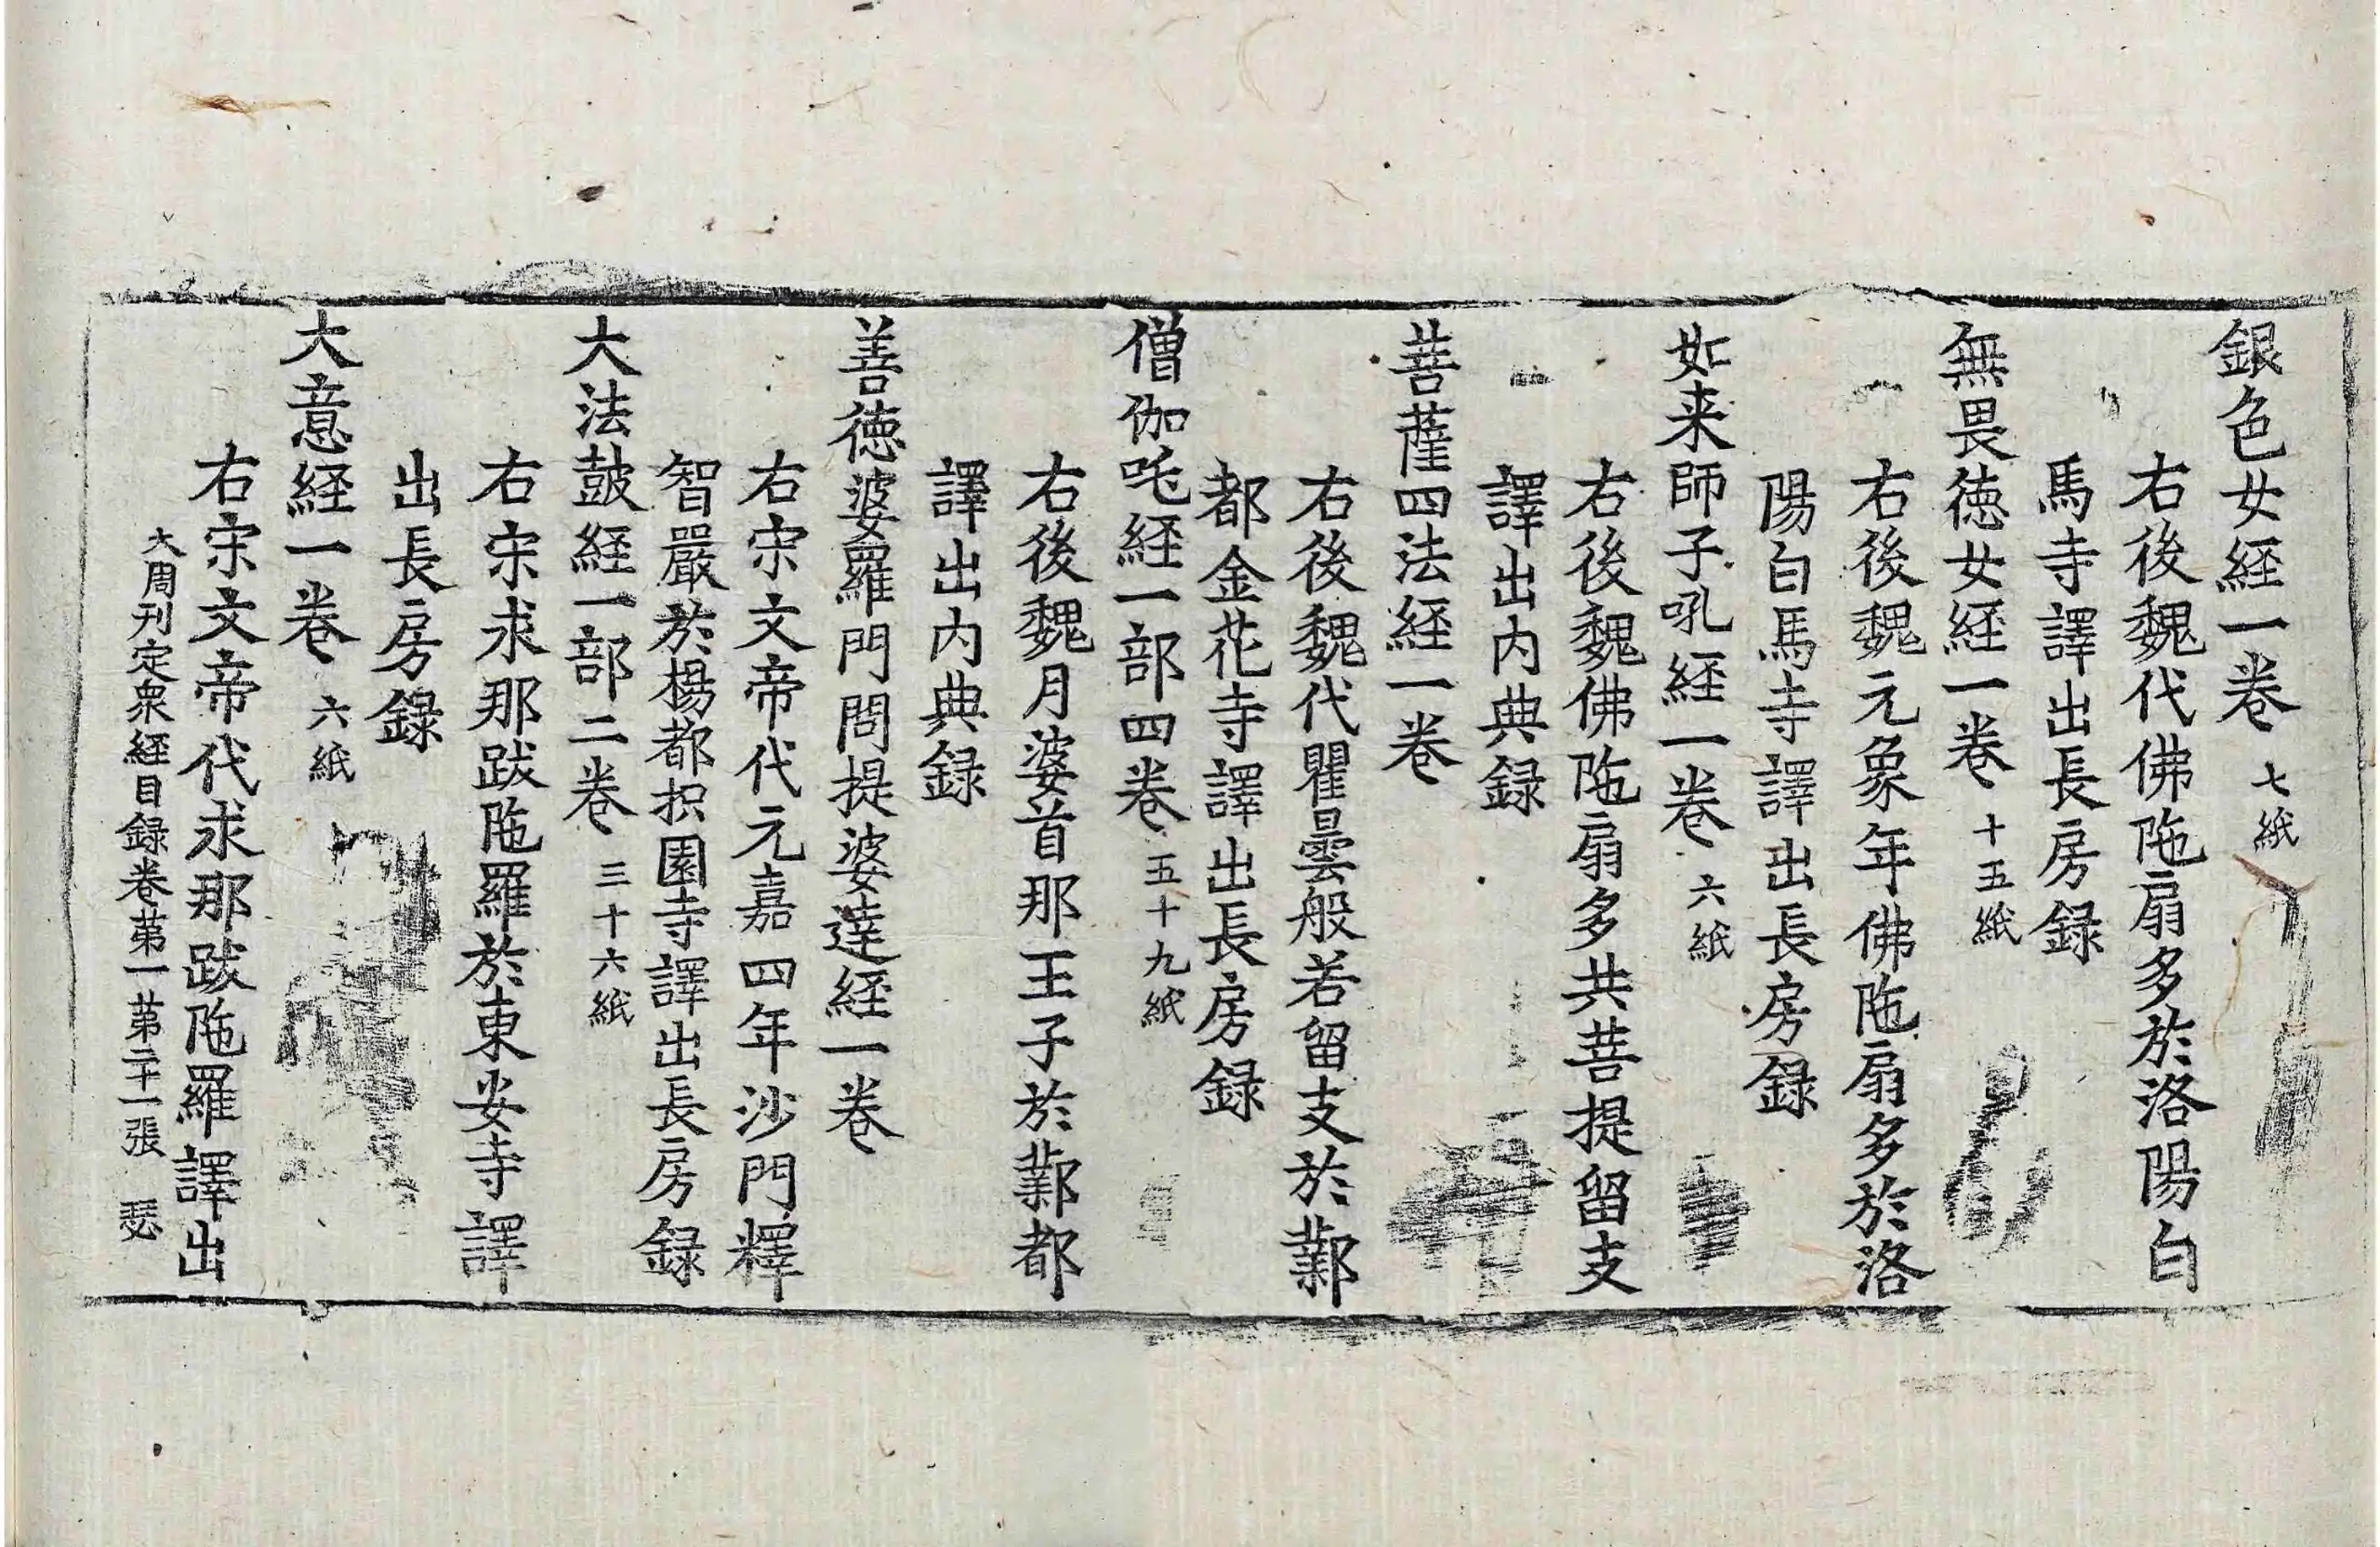 銀色女経一卷 七紙
右後魏代佛陁扇多於洛陽白
馬寺譯出長房録
無畏徳女経一卷 十五紙
右後魏元象年佛陁扇多於洛
陽白馬寺譯出長房録
如来師子吼経一卷 六紙
右後魏佛陁扇多共菩提留支
譯出内典録
菩薩四法経一卷
右後魏代瞿曇般若留支於鄴
都金花寺譯出長房録
僧伽吒経一部四卷 五十九紙
右後魏月婆首那王子於鄴都
譯出内典録
善徳婆羅門問提婆達経一卷
右宋文帝代元嘉四年沙門釋
智嚴於楊都枳園寺譯出長房録
大法皷経一部二卷 三十六紙
右宋求那跋陁羅於東安寺譯
出長房録
大意経一卷 六紙
右宋文帝代求那跋陁羅譯出
大周刊定衆経目録卷苐一苐二十一張 瑟